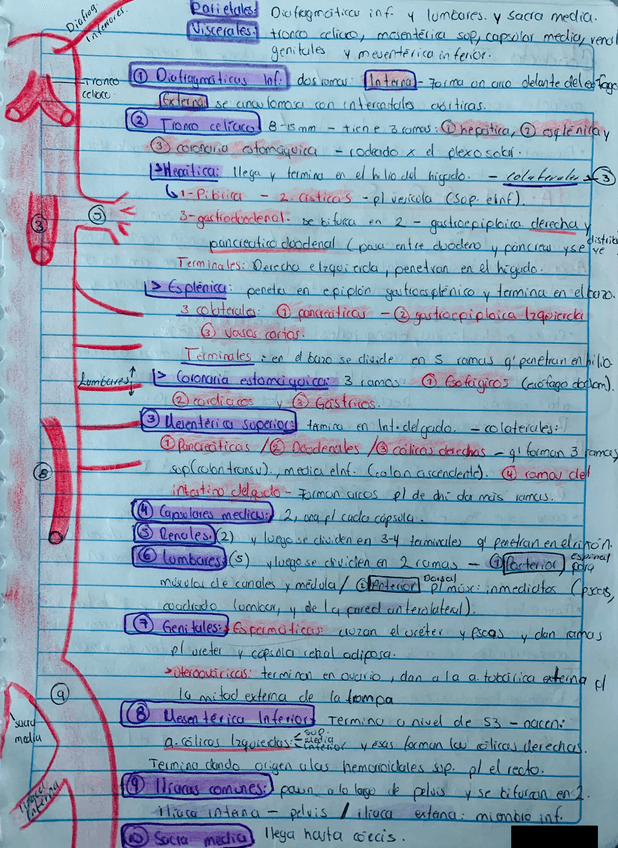 Diafrag
inferiores.
Parietales: Diafragmáticas inf. y lumbares. y sacra media.
Viscerales: tronco celiaco, mesentérica sup, capsular media, renal
genitales y mesentérica inferior.
Tronco
celiaco
① Diafragmáticas Inf. dos ramas: Interna - Forma un arco delante del esófago
Externa se anastomosa con intercostales aórticas.
② Tronco celiaco 8-15mm - tiene 3 ramas: ① hepática, ② esplénica y
③ coronaria estomáquica - rodeado x el plexo solar.
Hepática: llega y termina en el hilio del hígado. - colaterales 3
1-Pilórica - 2 císticas - pl vesícula (sup. e Inf).
3-gastroduodenal. se bifurca en 2 - gastroepiploica derecha y
pancreático duodenal (pasa entre duodeno y páncreas y se distribuye
Terminales: Derecha e Izquierda, penetran en el hígado.
Esplénica: penetra en epiplón gastroesplénico y termina en el bazo.
3 colaterales: ① pancreáticas - ② gastroepiploica Izquierda
③ vasos cortos.
Terminales: en el bazo se divide en 5 ramas q' penetran en hilio.
Lumbares
Coronaria estomáquica: 3 ramas ① Esofágicas (esófago abdom).
② cardiacas y ③ Gástricas.
③ Mesentérica superior: termina en Int. delgado. - colaterales:
① Pancreáticas / ② Duodenales / ③ cólicas derechas - q' forman 3 ramas,
sup (colon transv.), media e Inf. (colon ascendente). ④ ramas del
intestino delgado - Forman arcos pl de ahí da más ramas.
④ Capsulares medias: 2, una pl cada cápsula.
⑤ Renales: (2) y luego se dividen en 3-4 terminales q' penetran en el riñón.
⑥ Lumbares (5) y luego se dividen en 2 ramas - ① Posterior, para
espinal
músculos de canales y médula / ② Anterior pl músc. inmediatos (psoas,
Dorsal
cuadrado lumbar, y de la pared anterolateral).
⑦ Genitales: Espermáticas cruzan el uréter y psoas y dan ramas
pl uréter y capsula renal adiposa.
Uteroováricas: terminan en ovario, dan a la a. tubárica externa pl
la mitad externa de la trompa
⑧ Mesentérica Inferior: Termina a nivel de S3 - nacen:
a. cólicas Izquierdas: sup. media inferior y esas forman las cólicas derechas.
Termina dando origen a las hemorroidales sup. pl el recto.
⑨ Iliacas comunes: pasan a lo largo de pelvis y se bifurcan en 2.
Iliaca interna - pelvis / iliaca externa: miembro inf.
⑩ Sacra media llega hasta cóccis.
②
③
⑧
⑨
sacra
media